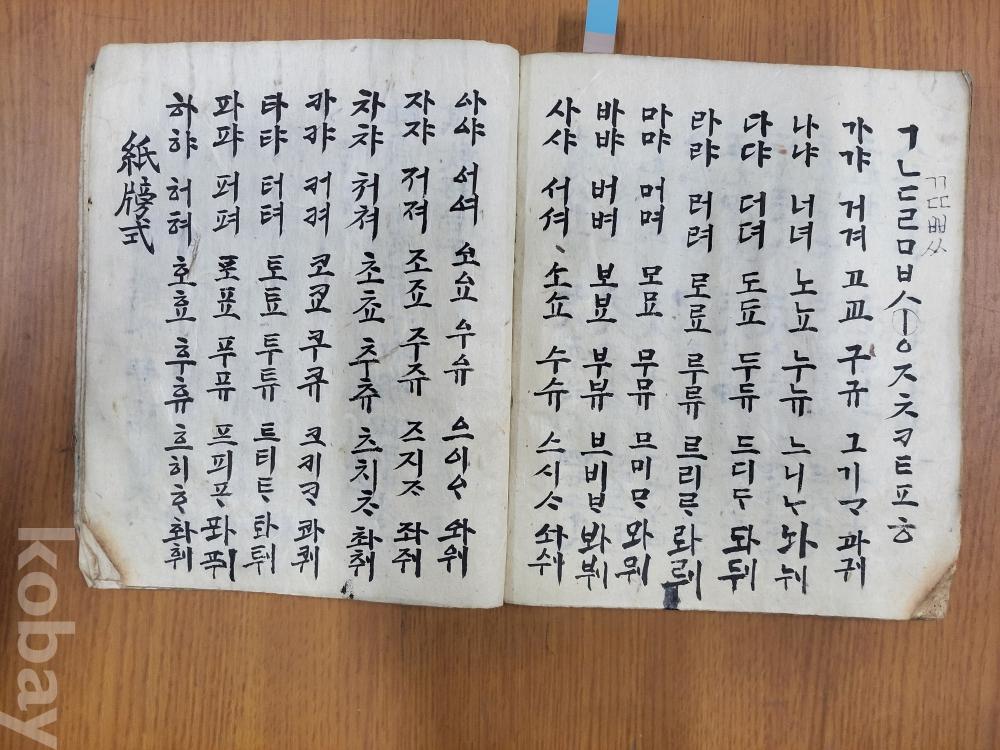 ㄱㄴㄷㄹㅁㅂㅅㅣㅇㅈㅊㅋㅌㅍㅎ
ㄲㄸㅃㅆ
가갸 거겨 고교 구규 그기ᄀᆞ 과궈
나냐 너녀 노뇨 누뉴 느니ᄂᆞ 놔눠
다댜 더뎌 도됴 두듀 드디ᄃᆞ 돠둬
라랴 러려 로료 루류 르리ᄅᆞ 롸뤄
마먀 머며 모묘 무뮤 므미ᄆᆞ 뫄뭐
바뱌 버벼 보뵤 부뷰 브비ᄇᆞ 봐붜
사샤 서셔 소쇼 수슈 스시ᄉᆞ 솨숴
아야 어여 오요 우유 으이ᄋᆞ 와워
자쟈 저져 조죠 주쥬 즈지ᄌᆞ 좌줘
차챠 처쳐 초쵸 추츄 츠치ᄎᆞ 촤춰
카캬 커켜 코쿄 쿠큐 크키ᄏᆞ 콰쿼
타탸 터텨 토툐 투튜 트티ᄐᆞ 톼퉈
파퍄 퍼펴 포표 푸퓨 프피ᄑᆞ 퐈풔
하햐 허혀 호효 후휴 흐히ᄒᆞ 화훠
紙牓式
kobay